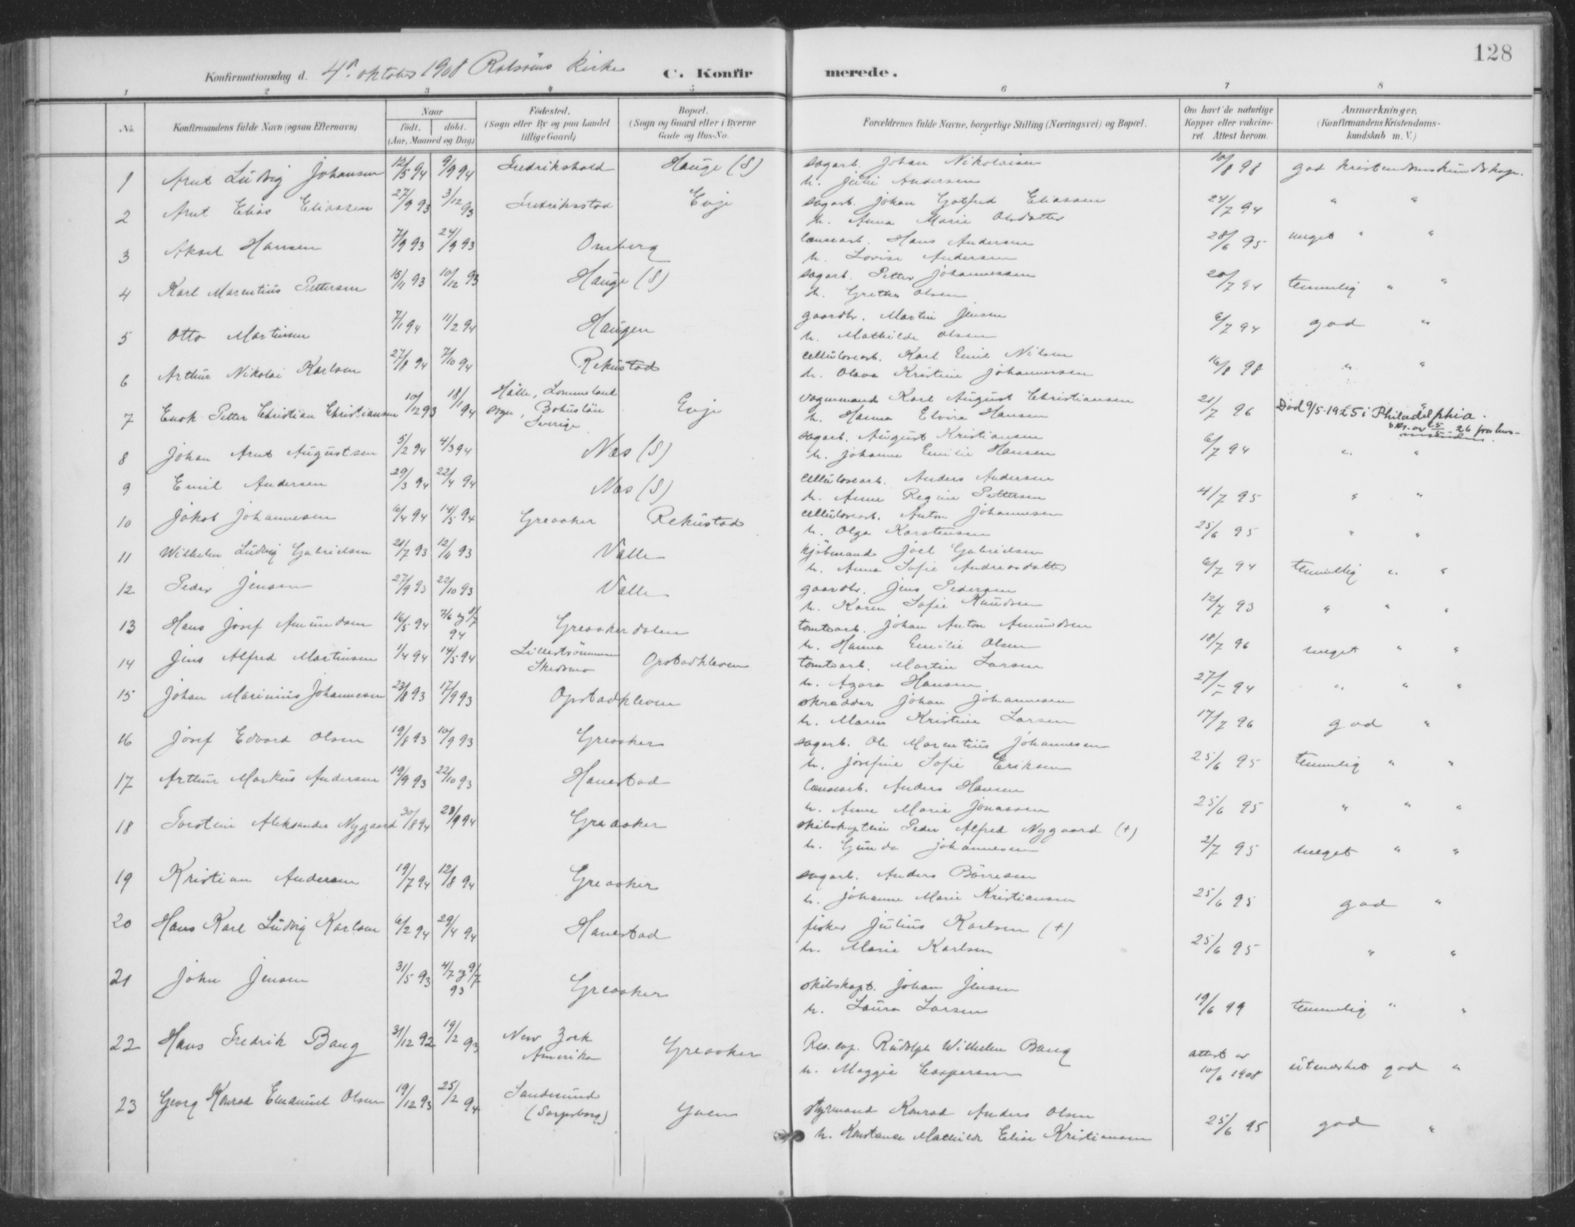 128
Konfirmationsdag d. 4de oktober 1908 Rolvsøens kirke C. Konfirmerede.
1 2 3 4 5 6 7 8
No. Konfirmandens fulde Navn (ogsaa Efternavn) Naar født, døbt. (Aar, Maaned og Dag) Fødested. (Sogn eller By og paa Landet tillige Gaard) Bopæl. (Sogn og Gaard eller i Byerne Gade og Hus-No. Forældrenes fulde Navne, borgerlige Stilling (Næringsvei) og Bopæl. Om havt de naturlige Kopper eller vakcineret Attest herom. Anmærkninger. (Konfirmandens Kristendomskundskab m. V.)
1 Arnt Ludvig Johansen 12/5 94 9/9 94 Fredrikshald Hauge (S) sagarb. Johan Nikolaisen 10/8 98 god kristendomskundskap.
h. Julie Andersen
2 Arnt Elias Eliassen 27/9 93 3/12 93 Fredriksstad Evje sagarb. Johan Gotfred Eliassen 24/7 94 " "
h. Anna Marie Olsdatter
3 Aksel Hansen 7/9 93 24/9 93 Omberg lænsearb. Hans Andersen 28/6 95 meget " "
h. Lovise Andersen
4 Karl Marentius Pettersen 15/11 93 10/12 93 Hauge (S) sagarb. Petter Johannessen 20/7 94 temmelig " "
h. Grethe Olsen
5 Otto Martinsen 7/1 94 11/2 94 Haugen gaardbr. Martin Jensen 6/7 94 god "
h. Mathilde Olsen
6 Arthur Nikolai Karlsen 27/8 94 7/10 94 Rekustad cellulosearb. Karl Emil Nilsen 16/8 98 " "
h. Olava Kristine Johannessen
7 Enok Petter Christian Christiansen 10/12 93 18/1 94 Hälle, Lommeland sogn, Bohuslän Sverige Evje vognmand Karl August Christiansen 21/7 96 Død 9/5-1925 i Philadelphia.
h. Hanna Elvira Hansen
8 Johan Arnt Augustsen 5/2 94 4/3 94 Næs (S) sagarb. August Kristiansen 6/7 94 " "
h. Johanne Emilie Hansen
9 Emil Andersen 29/3 94 22/4 94 Næs (S) cellulosearb. Anders Andersen 4/7 95 " "
h. Anne Regine Pettersen
10 Jakob Johannesen 6/4 94 14/5 94 Greaaker Rekustad cellulosearb. Anton Johannesen 25/6 95 " "
h. Olga Karstensen
11 Wilhelm Ludvig Gabrielsen 21/7 93 12/11 93 Valle kjøbmand Joel Gabrielsen 6/7 94 temmelig " "
h. Anna Sofie Andreasdatter
12 Peder Jensen 27/9 93 22/10 93 Valle gaardbr. Jens Pedersen 12/7 93 " " "
h. Karen Sofie Knudsen
13 Hans Josef Amundsen 16/5 94 Greaakerdalen tomtearb. Johan Anton Amundsen 18/7 96 meget " "
h. Hanna Emilie Olsen
14 Jens Alfred Martinsen 1/4 94 14/5 94 Lillestrømmen Skedsmo Opstadkleven tomtearb. Martin Larsen 94 " " "
h. Agara Hansen
15 Johan Marinius Johannesen 22/8 93 17/9 93 Opstadkleven skrædder Johan Johannesen 17/7 96 god "
h. Maren Kristine Larsen
16 Josef Edvard Olsen 19/8 93 10/9 93 Greaaker sagarb. Ole Marentius Johannesen 25/6 95 temmelig " "
h. Josefine Sofie Eriksen
17 Arthur Markus Andersen 19/9 93 22/10 93 Hanestad lænsearb. Anders Hansen 25/6 95 " " "
h. Anne Marie Jonassen
18 Torstein Aleksander Nygaard 30/8 94 23/9 94 Greaaker skibskaptein Peder Alfred Nygaard (+) 2/7 95 meget " "
h. Gunda Johannesen
19 Kristian Andersen 19/7 94 12/8 94 Greaaker sagarb. Anders Børresen 25/6 95 god "
h. Johanne Marie Kristiansen
20 Hans Karl Ludvig Karlsen 6/2 94 29/4 94 Hanestad fisker Julius Karlsen (+) 25/6 95 " "
h. Marie Karlsen
21 John Jensen 31/5 93 4/7 og 9/7 93 Greaaker skibskapt. Johan Jensen 19/6 99 temmelig " "
h. Laura Larsen
22 Hans Fredrik Bang 31/12 92 19/2 93 New York Amerika Greaaker Res. cap. Rudolph Wilhelm Bang attest av 10/6 1908 utmerket god "
h. Maggie Caspersen
23 Georg Konrad Emanuel Olsen 19/12 93 25/2 94 Sandesund (Sarpsborg) Yven styrmand Konrad Anders Olsen 25/6 95 god "
h. Konstance Mathilde Elise Kristiansen